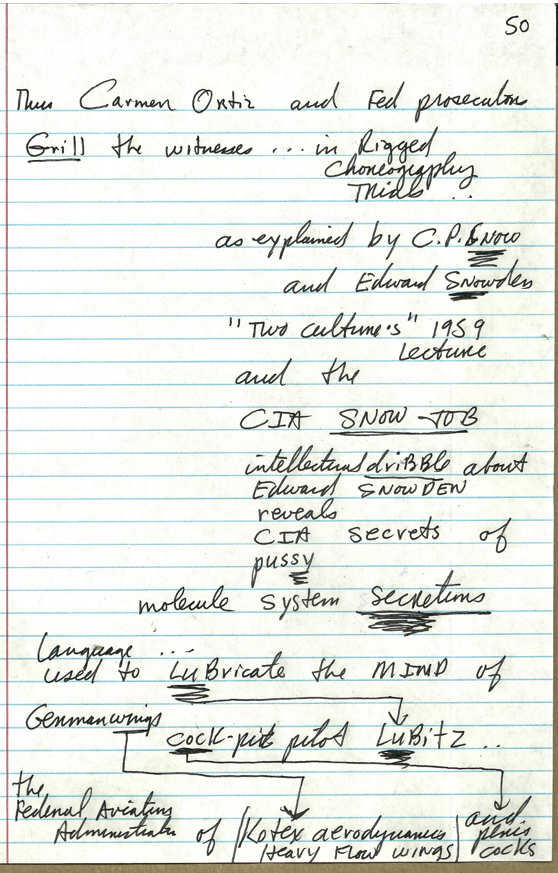 50
Thus Carmen Ortiz and Fed prosecutors
Grill the witnesses ... in Rigged
Choreography
Trials ...
as explained by C.P. SNOW
and Edward Snowden
"Two culture's" 1959
Lecture
and the
CIA SNOW-JOB
intellectual driBBle about
Edward SNOWDEN
reveals
CIA secrets of
pussy
molecule system Secretions
Language ...
used to LuBricate the MIND of
Germanwings
cock-pit pilot LuBitz ..
the
Federal Aviation
Administration of Kotex aerodynamics and
Heavy Flow wings penis
cocks